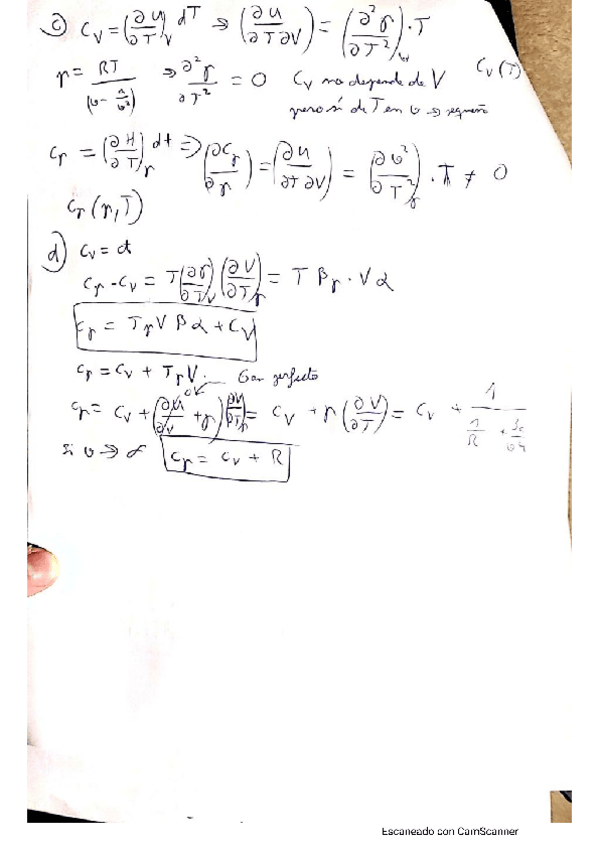 c) Cv = (∂u/∂T)v dT ⇒ (∂u/∂T∂V) = (∂²p/∂T²)v · T
p = RT/(v - a/v²) ⇒ ∂²p/∂T² = 0 Cv no depende de V Cv(T)
pero sí de T en v → pequeño
Cp = (∂H/∂T)p dt ⇒ (∂Cp/∂p) = (∂u/∂T∂V) = (∂v²/∂T²)p · T ≠ 0
Cp(p,T)
d) Cv =
Cp - Cv = T(∂p/∂T)v (∂V/∂T)p = T βp · Vα
Cp = TpVβα + Cv
Cp = Cv + TpV. Gas perfecto
Cp = Cv + (∂u/∂v + p)(∂V/∂T)p = Cv + p(∂V/∂T) = Cv +
si v → ∝ Cp = Cv + R
Escaneado con CamScanner